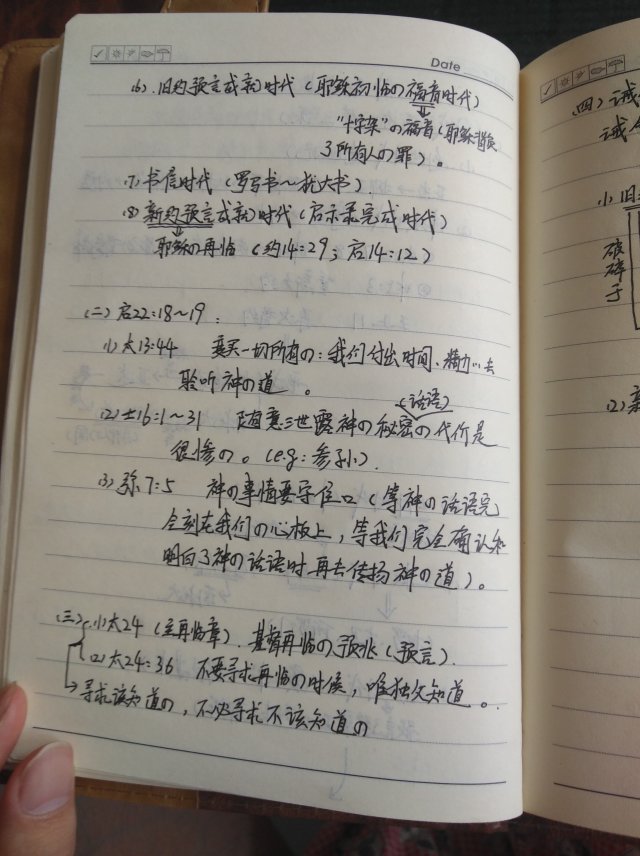 Date
(6). 旧约预言成就时代 (耶稣初临の福音时代)
"十字架"の福音 (耶稣背负
了所有人の罪)。
(7) 书信时代 (罗马书~犹大书)
(8) 新约预言成就时代 (启示录完成时代)
耶稣の再临 (约14:29; 启14:12)
(二) 启22:18~19:
(1) 太13:44 变卖一切所有の: 我们付出时间、精力…去
聆听神の道。
(话语)
(2) 士16:1~31 随意泄露神の秘密の代价是
很惨の。(eg: 参孙)
(3) 弥7:5 神の事情要守住口 (等神の话语完
全刻在我们の心板上, 等我们完全确认和
明白了神の话语时再去传扬神の道)。
(三) (1) 太24 (主再临章). 基督再临の预兆 (预言).
(2) 太24:36 不要寻求再临の时候, 唯独父知道。
寻求该知道の, 不必寻求不该知道の
(四) 诫
诫命
(1) 旧
破
碎
于
(2) 新